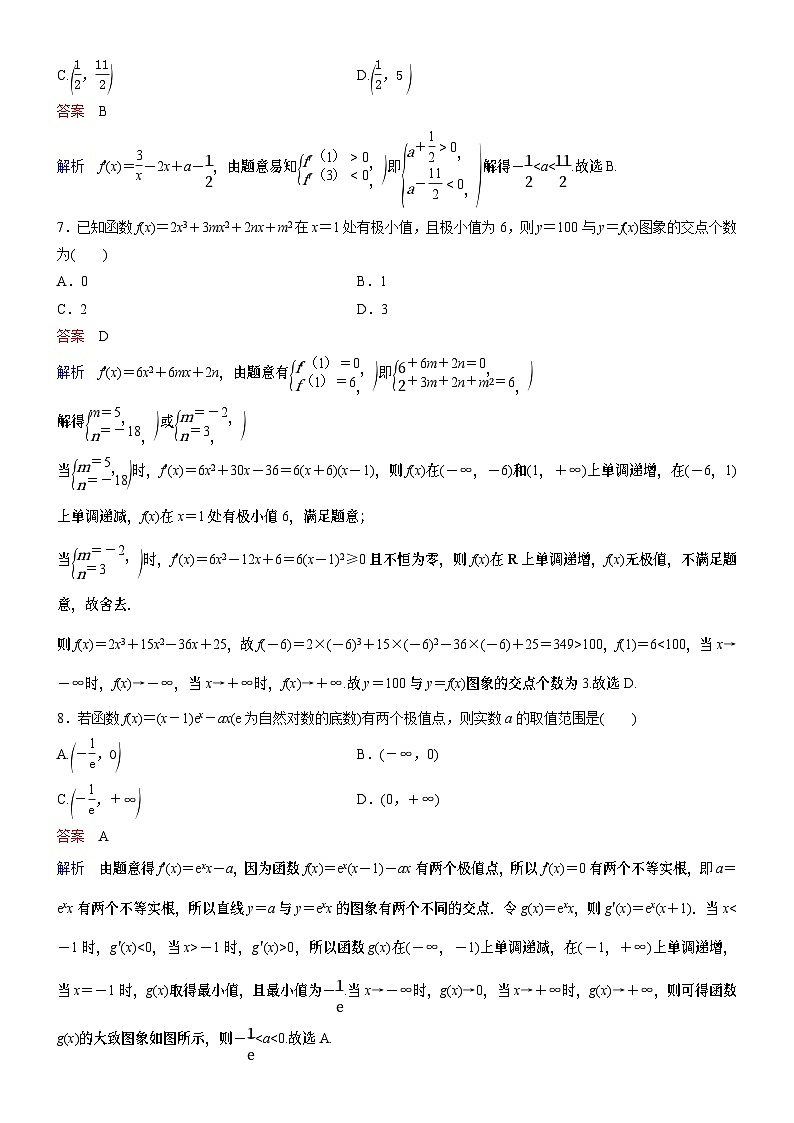 C.(1/2，11/2) D.(1/2，5)
答案 B
解析 f′(x)=3/x−2x+a−1/2，由题意易知{f′（1）＞0，f′（3）＜0，)即{a+1/2＞0，a−11/2＜0，)解得−1/2<a<11/2.故选B.
7．已知函数f(x)=2x³+3mx²+2nx+m²在x=1处有极小值，且极小值为6，则y=100与y=f(x)图象的交点个数
为( )
A．0 B．1
C．2 D．3
答案 D
解析 f′(x)=6x²+6mx+2n，由题意有{f′（1）=0，f（1）=6，)即{6+6m+2n=0，2+3m+2n+m²=6，)
解得{m=5，n=−18，)或{m=−2，n=3，)
当{m=5，n=−18)时，f′(x)=6x²+30x−36=6(x+6)(x−1)，则f(x)在(−∞，−6)和(1，+∞)上单调递增，在(−6，1)
上单调递减，f(x)在x=1处有极小值6，满足题意；
当{m=−2，n=3)时，f′(x)=6x²−12x+6=6(x−1)²≥0且不恒为零，则f(x)在R上单调递增，f(x)无极值，不满足题
意，故舍去．
则f(x)=2x³+15x²−36x+25，故f(−6)=2×(−6)³+15×(−6)²−36×(−6)+25=349>100，f(1)=6<100，当x→
−∞时，f(x)→−∞，当x→+∞时，f(x)→+∞.故y=100与y=f(x)图象的交点个数为3.故选D.
8．若函数f(x)=(x−1)eˣ−ax(e为自然对数的底数)有两个极值点，则实数a的取值范围是( )
A.(−1/e，0) B．(−∞，0)
C.(−1/e，+∞) D．(0，+∞)
答案 A
解析 由题意得f′(x)=eˣx−a，因为函数f(x)=eˣ(x−1)−ax有两个极值点，所以f′(x)=0有两个不等实根，即a=
eˣx有两个不等实根，所以直线y=a与y=eˣx的图象有两个不同的交点．令g(x)=eˣx，则g′(x)=eˣ(x+1)．当x<
−1时，g′(x)<0，当x>−1时，g′(x)>0，所以函数g(x)在(−∞，−1)上单调递减，在(−1，+∞)上单调递增，
当x=−1时，g(x)取得最小值，且最小值为−1/e.当x→−∞时，g(x)→0，当x→+∞时，g(x)→+∞，则可得函数
g(x)的大致图象如图所示，则−1/e<a<0.故选A.